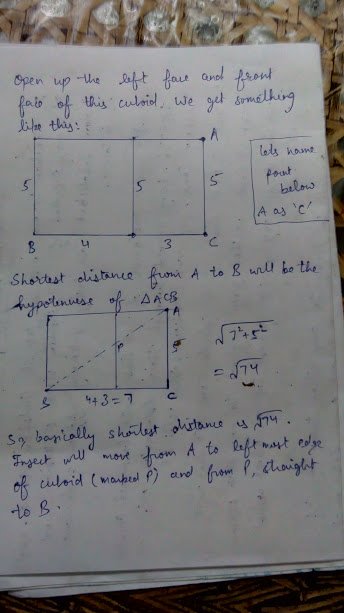 Open up the left face and front
face of this cuboid. We get something
like this:
A
5
5
5
B
4
3
C
Lets name
point
below
A as 'C'
Shortest distance from A to B will be the
hypotenuse of △ACB
A
P
5
B
4+3=7
C
√7²+5²
= √74
So, basically shortest distance is √74.
Insect will move from A to left most edge
of cuboid (marked P) and from P, straight
to B.